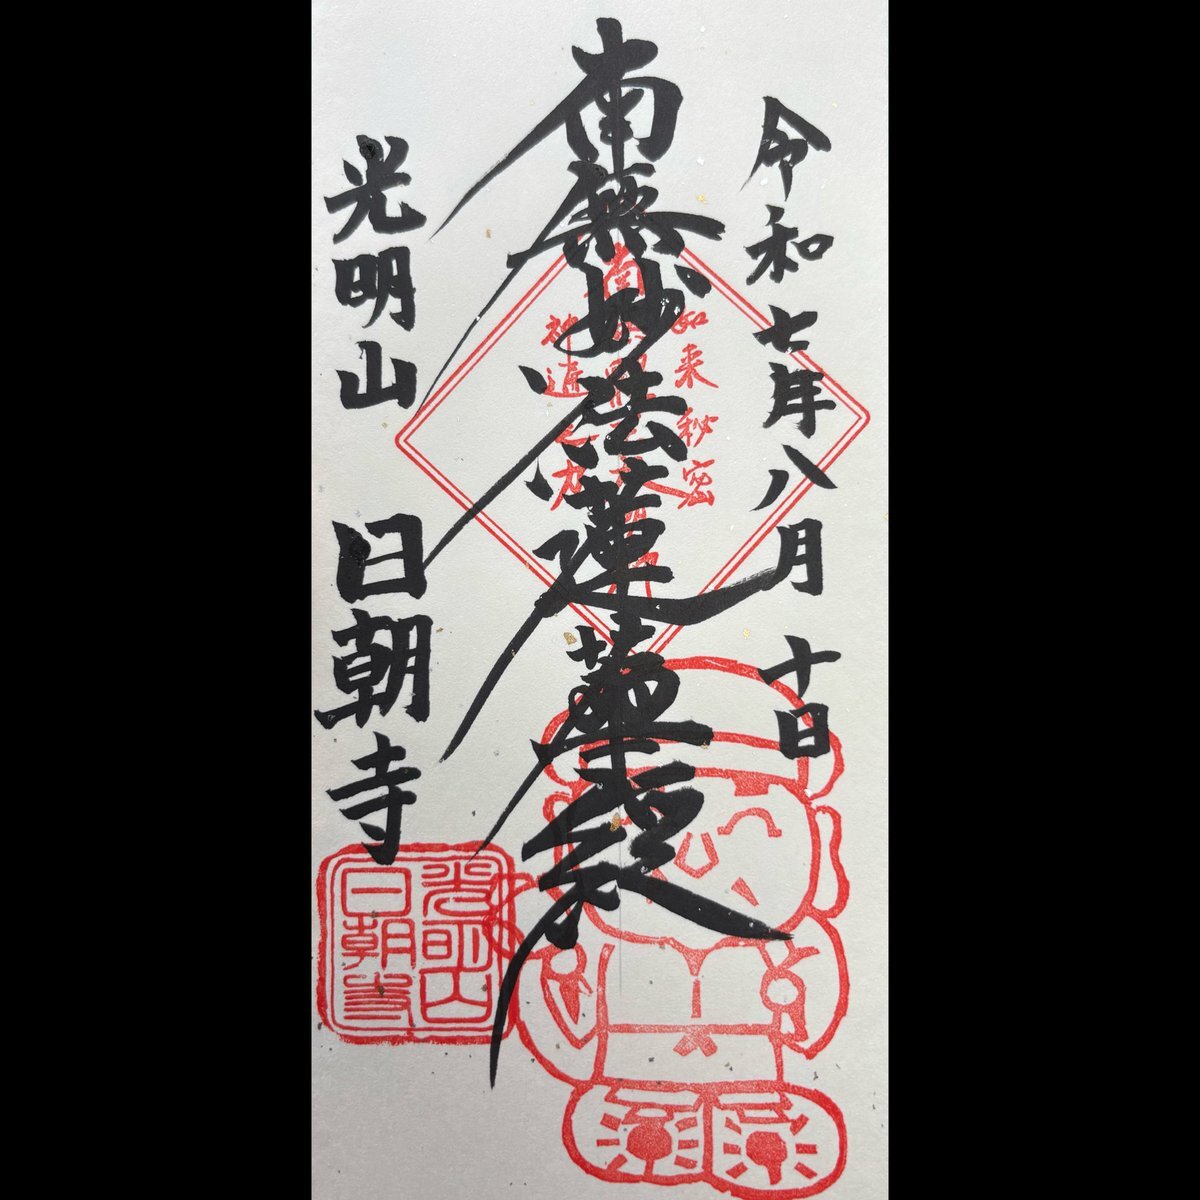 令和七年八月十日
南無妙法蓮華経
如来秘密
神通之力
光明山 日朝寺
光明山
日朝寺